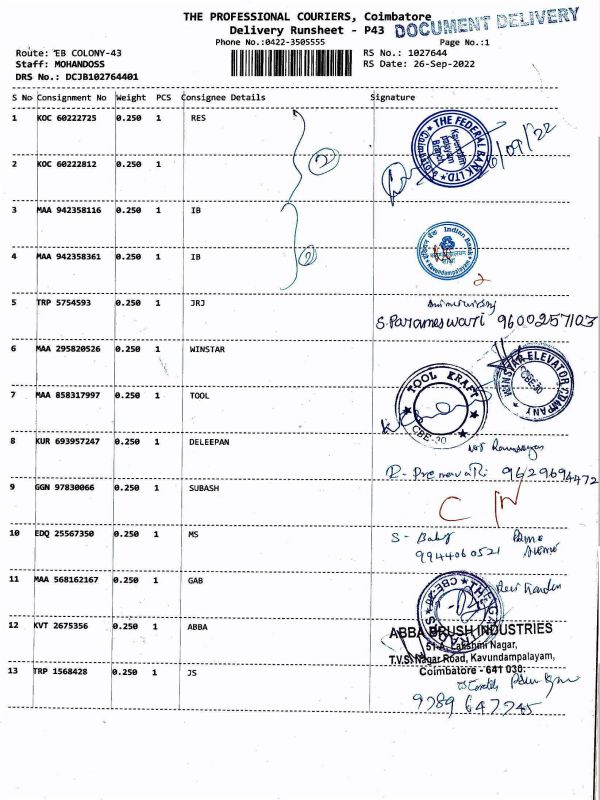 THE PROFESSIONAL COURIERS, Coimbatore
Delivery Runsheet - P43
DOCUMENT DELIVERY
Phone No.:0422-3505555
Page No.:1
Route: EB COLONY-43
RS No.: 1027644
Staff: MOHANDOSS
RS Date: 26-Sep-2022
DRS No.: DCJB102764401
S No Consignment No Weight PCS Consignee Details Signature
1 KOC 60222725 0.250 1 RES
THE FEDERAL BANK LTD
Kavundam palayam Branch
Coimbatore
2
2 KOC 60222812 0.250 1
3 MAA 942358116 0.250 1 IB
Indian Bank
Kavundampalayam
2
4 MAA 942358361 0.250 1 IB
2
5 TRP 5754593 0.250 1 JRJ
S. Parameswari 9600257103
6 MAA 295820526 0.250 1 WINSTAR
WINSTAR ELEVATOR COMPANY
CBE-30
7 MAA 858317997 0.250 1 TOOL
TOOL KRAFT
CBE-30
8 KUR 693957247 0.250 1 DELEEPAN
R- Premavathi 9629694472
9 GGN 97830066 0.250 1 SUBASH
10 EDQ 25567350 0.250 1 MS
S- Baby
9944060521
11 MAA 568162167 0.250 1 GAB
12 KVT 2675356 0.250 1 ABBA
ABBA BRUSH INDUSTRIES
51-A, Lakshmi Nagar,
T.V.S. Nagar Road, Kavundampalayam,
Coimbatore - 641 030.
13 TRP 1568428 0.250 1 JS
9789647745